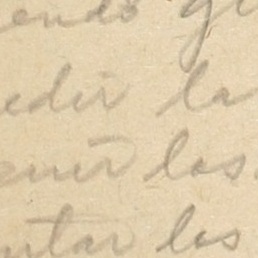 endo g
edir la
enir los
ntar los